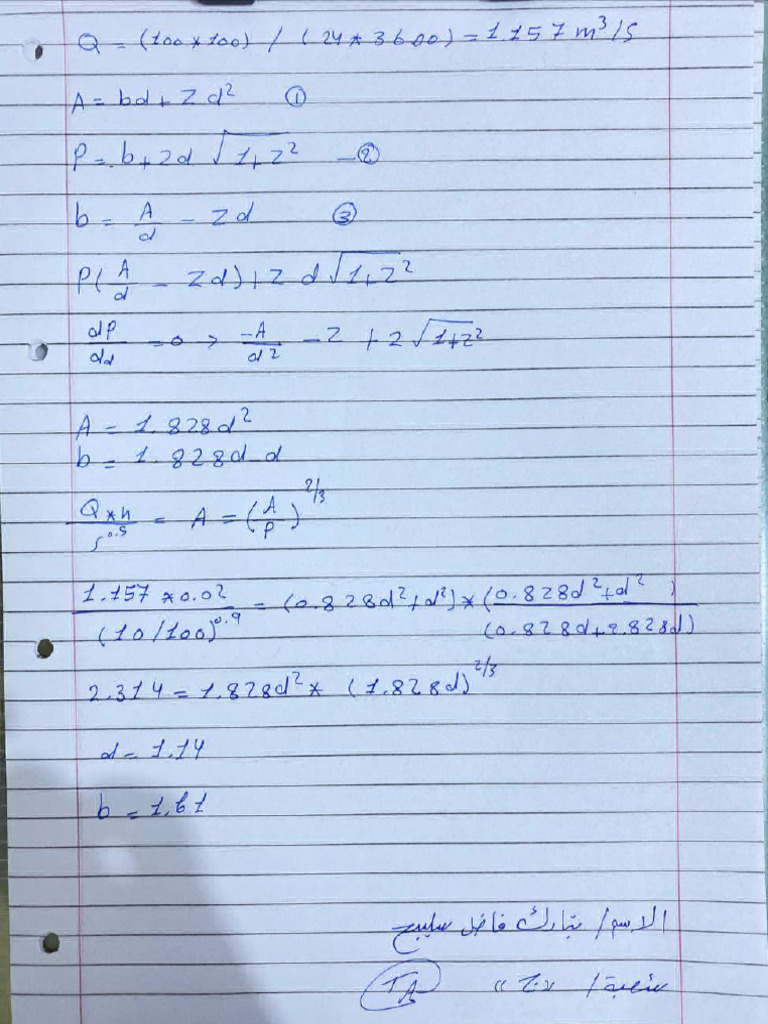 Q = (100*100) / (24*3600) = 1.157 m³/s
A = bd + Zd² ①
P = b + 2d √1+Z² - ②
b = A/d - Zd ③
P(A/d - Zd) + 2 d√1+Z²
dP/dd = 0 > -A/d² - Z + 2√1+Z²
A = 1.828d²
b = 1.828d - d
Q*n/s^0.5 = A = (A/P)^2/3
1.157*0.02/(10/100)^0.9 = (0.828d²+d²)*(0.828d²+d²)/(0.828d+2.828d)
2.314 = 1.828d² * (1.828d)^2/3
d = 1.14
b = 1.61
الاسم/ تبارك فاضل
شعبة/ "ج"